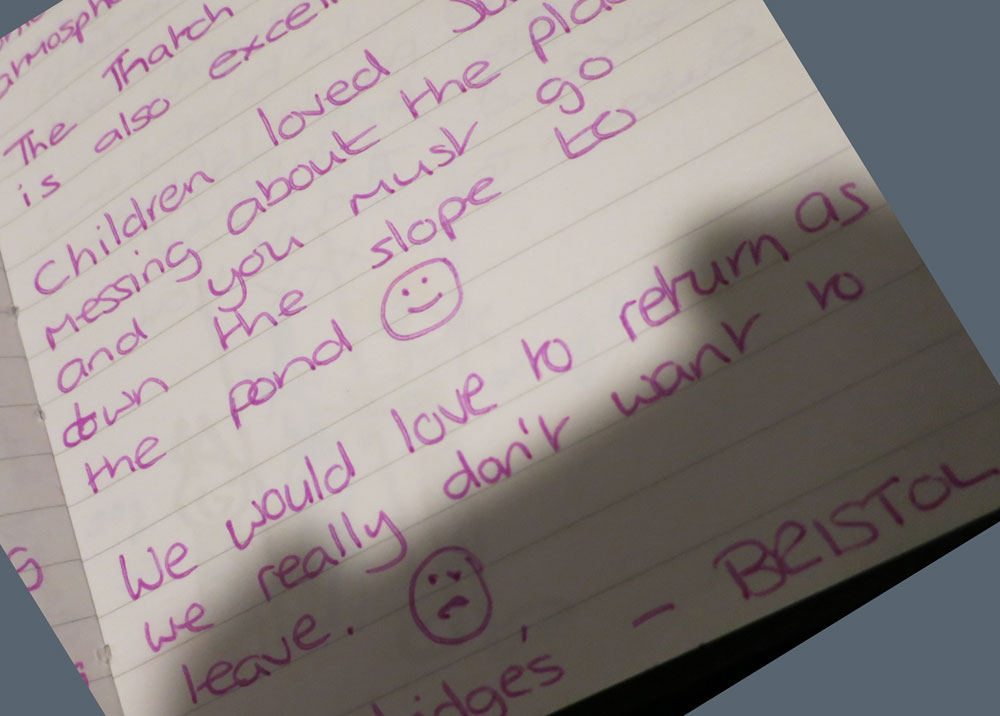 The Thatch
is also
Children loved
messing about the
and you must go
down the slope to
the pond
We would love to return as
we really don't want to
leave.
- BRISTOL